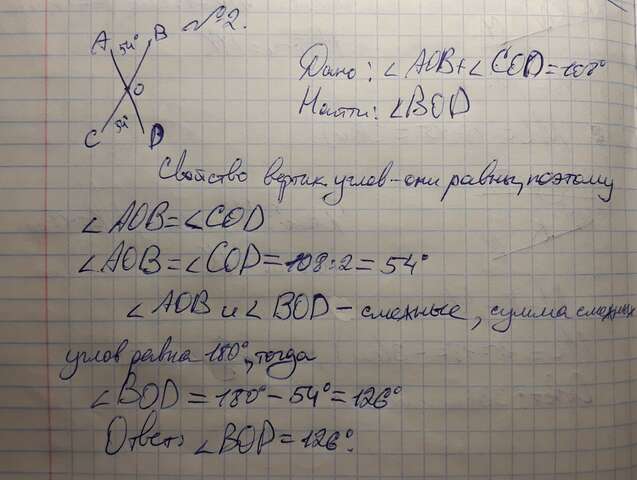 №2.
A 54° B
O
C 54° D
Дано: ∠AOB+∠COD=108°
Найти: ∠BOD
Свойство вертик. углов - они равны, поэтому
∠AOB=∠COD
∠AOB=∠COD=108:2=54°
∠AOB и ∠BOD - смежные, сумма смежных
углов равна 180°, тогда
∠BOD=180°-54°=126°
Ответ: ∠BOD=126°.